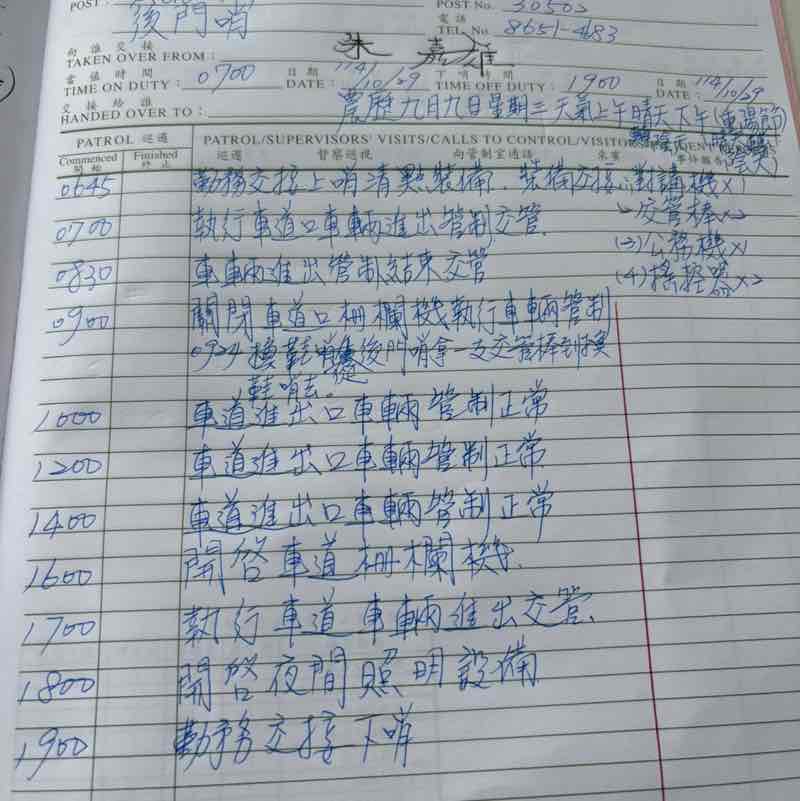 POST: POST No. 30503
後門哨 電話
TEL No. 8651-4683
向誰交接 朱嘉雄
TAKEN OVER FROM:
當值時間 日期 下哨時間 日期
TIME ON DUTY: 0700 DATE: 114/10/29 TIME OFF DUTY: 1900 DATE: 114/10/29
交接給誰
HANDED OVER TO: 農歷九月九日星期三天氣上午晴天下午(重陽節)
陰天
PATROL 巡邏 PATROL/SUPERVISORS' VISITS/CALLS TO CONTROL/VISITORS
Commenced Finished 巡邏 督察巡視 向管制室通話 來賓 事件報告
開始 終止
0645 勤務交接上哨清點裝備.裝備交接:對講機×1
0700 執行車道口車輛進出管制交管. 交管棒×2
(3)公務機×1
0830 車輛進出管制結束交管 (4)搖控器×2
0900 關閉車道口柵欄機執行車輛管制
0924 後門哨拿一支交管棒到換
鞋哨去.
1000 車道進出口車輛管制正常
1200 車道進出口車輛管制正常
1400 車道進出口車輛管制正常
1600 開啓車道柵欄機.
1700 執行車道車輛進出交管.
1800 開啓夜間照明設備
1900 勤務交接下哨